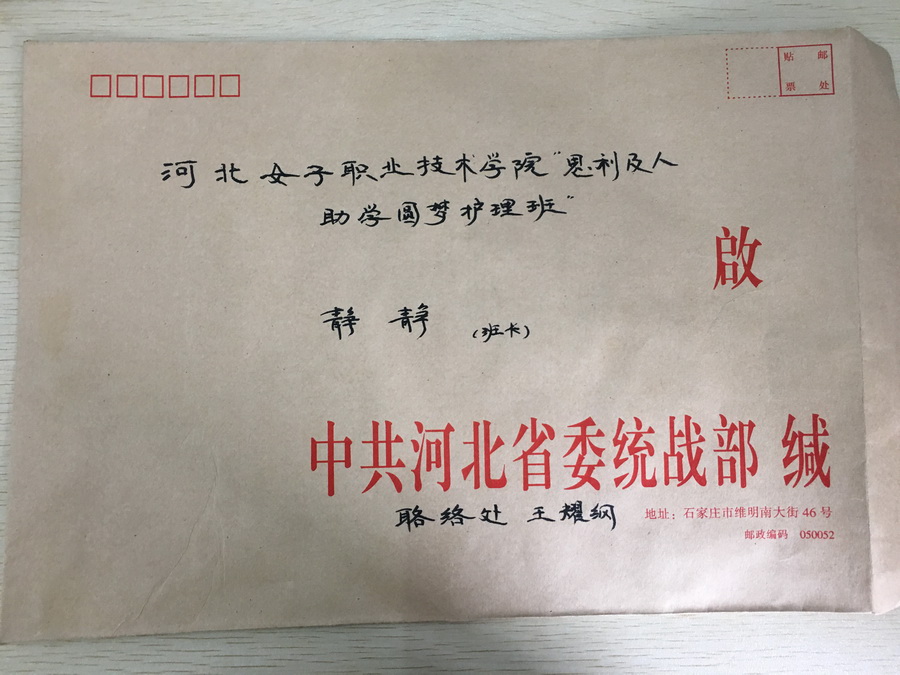 贴 邮
票 处
河北女子职业技术学院“恩利及人
助学圆梦护理班”
啟
静静（班长）
中共河北省委统战部 缄
联络处 王耀纲
地址：石家庄市维明南大街 46 号
邮政编码 050052